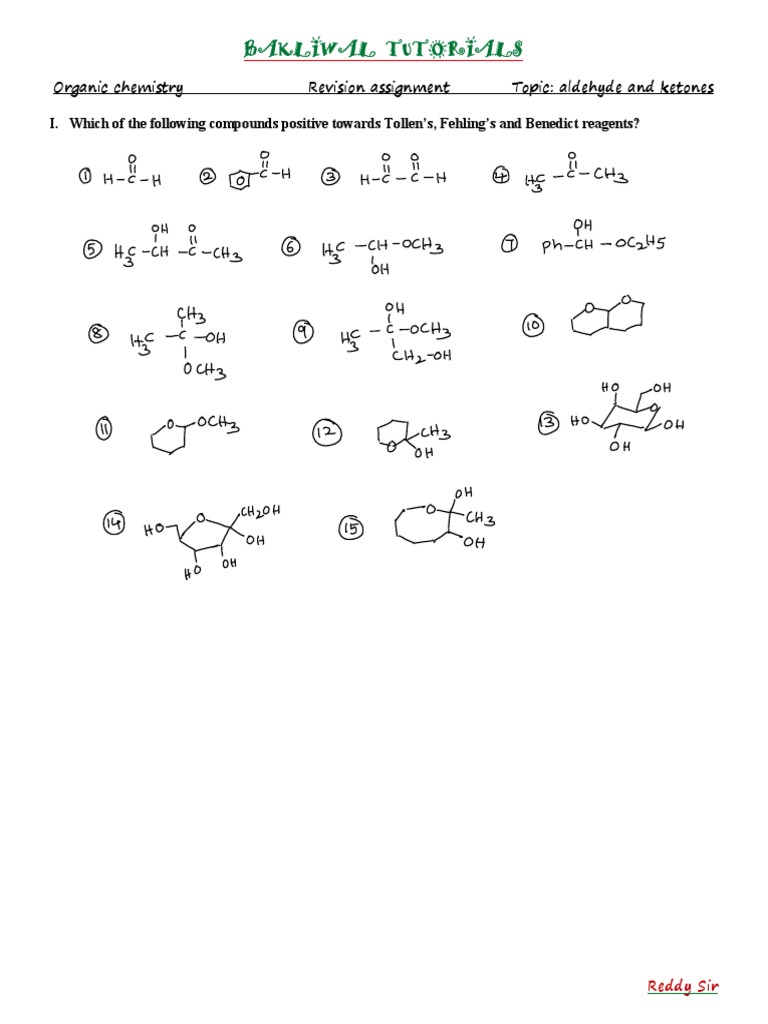 BAKLIWAL TUTORIALS
Organic chemistry Revision assignment Topic: aldehyde and ketones
I. Which of the following compounds positive towards Tollen's, Fehling's and Benedict reagents?
① H-C-H O ② O C-H O ③ H-C-C-H O O ④ H3C-C-CH3 O
⑤ H3C-CH-C-CH3 OH O ⑥ H3C-CH-OCH3 OH ⑦ Ph-CH-OC2H5 OH
⑧ H3C-C-OH CH3 OCH3 ⑨ H3C-C-OCH3 OH CH2-OH ⑩ O O
⑪ O OCH3 ⑫ O CH3 OH ⑬ HO OH HO O OH OH
⑭ HO O CH2OH OH OH HO ⑮ O OH CH3 OH
Reddy Sir